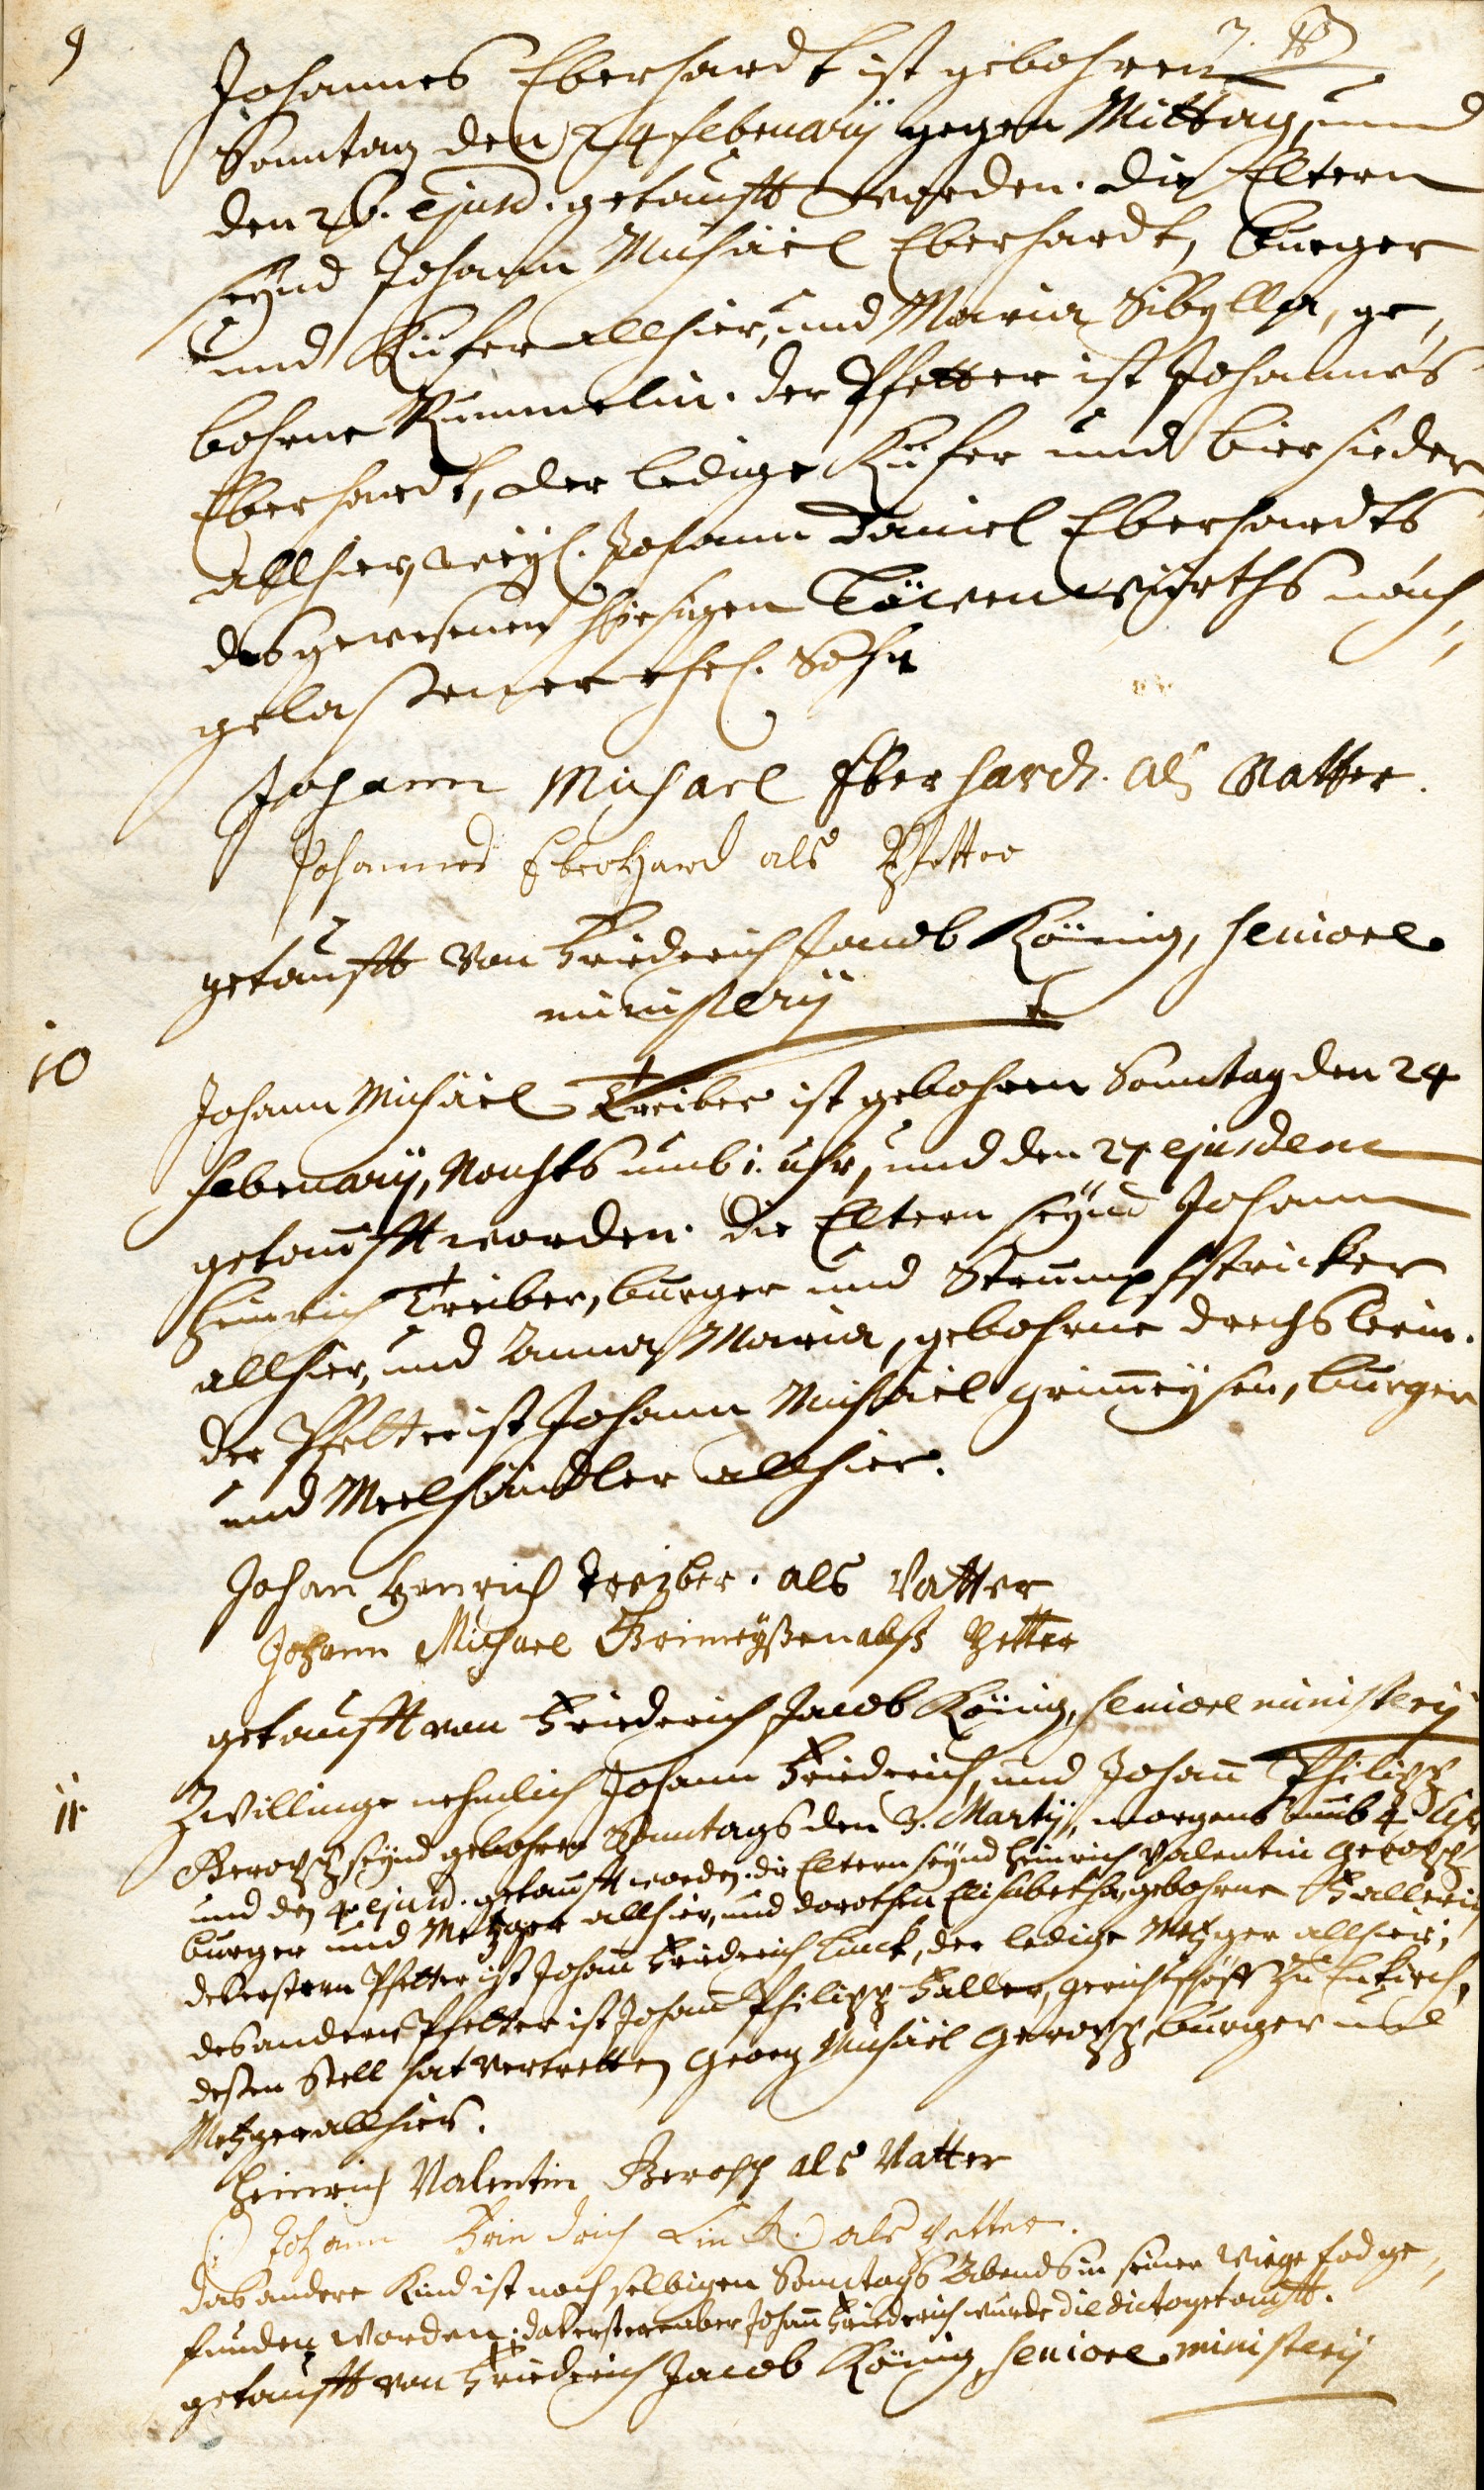 9
Johannes Eberhardt ist gebohren
Sonntag den 24 februarÿ gegen Mittag, und
den 26. ejusd. getaufft worden. die Eltern
seÿnd Johann Michäel Eberhardt, burger
und Küfer allhier, und Maria Sibylla, ge,,
bohrne Rummelin. der Pfetter ist Johannes
Eberhardt, der ledige Küfer und biersieder
allhier, weyl. Johann Daniel Eberhardts
des gewesenen hiesigen Löwenwürths nach,,
gelaßener ehel. Sohn
Johann Michael Eberhardt. als Vatter.
Johannes Eberhard als Pfetter
getaufft von Friederich Jacob König, seniore
ministerÿ
10
Johann Michäel Treiber ist gebohren Sonntag den 24
februarÿ, Nachts umb 1. uhr, und den 27 ejusdem
getaufft worden. die Eltern seÿnd Johann
Heinrich Treiber, burger und Strumpfstricker
allhier, und Anna Maria, gebohrne drechslerin.
der Pfetter ist Johann Michäel Grimeÿsen, burger
und Meelhändler allhier.
Johan Henrich Treiber. als Vatter
Johann Michael Grimeÿßen alß Petter
getaufft von Friederich Jacob König, seniore ministerÿ
11.
Zwillinge nehmlich Johann Friederich, und Johann Philipp
Geropp seÿnd gebohren Sonntags den 3. Martÿ, morgens umb 4 Uhr
und den 4 ejusd. getaufft worden. die Eltern seÿnd Heinrich Valentin Geropp
burger und Metzger allhier, und dorothea Elisabetha, gebohrne Fallerin
des erstern Pfetter ist Johann Friederich Linck, der ledige Metzger allhier;
des andern Pfetter ist Johann Philipp Faller, gerichtschöff zu Enkirch,
deßen Stell hat vertretten Georg Michäel Geropp, burger und
Metzger allhier.
Heinrich Valentin Geropp als Vatter
Johann Friedrich Linck als Petter.
das andere Kind ist noch selbigen Sonntags Abends in seiner Wiege tod ge,,
funden worden; das erstere aber Johann Friederich wurde die dicto getaufft.
getaufft von Friederich Jacob König, seniore ministerÿ